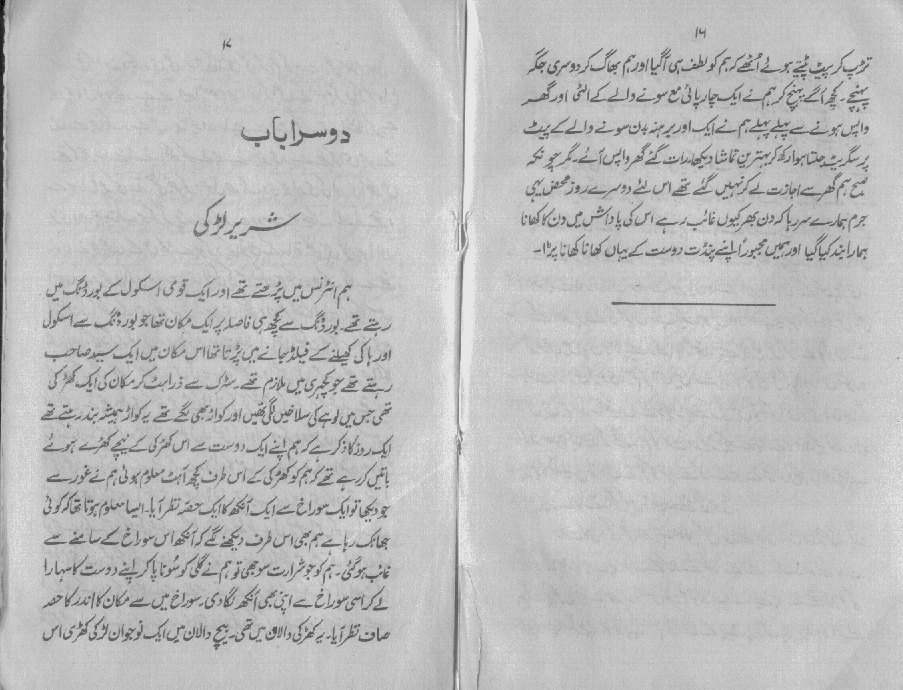 ۱۶
تڑپ کر پیٹ پیٹتے ہوئے اٹھے کہ ہم کو لطف ہی آگیا اور ہم بھاگ کر دوسری جگہ
پہنچے۔ کچھ آگے پہنچ کر ہم نے ایک چارپائی مع سونے والے کے الٹی اور گھر
واپس ہونے سے پہلے پہلے ہم نے ایک اور برہنہ بدن سونے والے کے پیٹ
پر سگریٹ جلتا ہوا رکھ کر بہترین تماشا دیکھا، رات گئے گھر واپس آئے۔ مگر چونکہ
صبح ہم گھر سے اجازت لے کر نہیں گئے تھے اس لئے دوسرے روز محض یہی
جرم ہمارے سر رہا کہ دن بھر کیوں غائب رہے اس کی پاداش میں دن کا کھانا
ہمارا بند کیا گیا اور ہمیں مجبوراً اپنے پنڈت دوست کے یہاں کھانا کھانا پڑا۔
۱۷
دوسرا باب
شریر لڑکی
ہم انٹرنس میں پڑھتے تھے اور ایک قومی اسکول کے بورڈنگ میں
رہتے تھے۔ بورڈنگ سے کچھ ہی فاصلہ پر ایک مکان تھا جو بورڈنگ سے اسکول
اور ہاکی کھیلنے کے فیلڈ جانے میں پڑتا تھا اس مکان میں ایک سید صاحب
رہتے تھے جو کچہری میں ملازم تھے۔ سڑک سے ذرا ہٹ کر مکان کی ایک کھڑکی
تھی جس میں لوہے کی سلاخیں لگی تھیں اور کواڑ بھی لگے تھے یہ کواڑ ہمیشہ بند رہتے تھے
ایک روز کا ذکر ہے کہ ہم اپنے ایک دوست سے اس کھڑکی کے نیچے کھڑے ہوئے
باتیں کر رہے تھے کہ ہم کو کھڑکی کے اس طرف کچھ آہٹ معلوم ہوئی ہم نے غور سے
جو دیکھا تو ایک سوراخ سے ایک آنکھ کا ایک حصہ نظر آیا۔ ایسا معلوم ہوتا تھا کہ کوئی
جھانک رہا ہے ہم بھی اس طرف دیکھنے لگے کہ آنکھ اس سوراخ کے سامنے سے
غائب ہو گئی۔ ہم کو جو شرارت سوجھی تو ہم نے گلی کو سُونا پا کر اپنے دوست کا سہارا
لے کر اسی سوراخ سے اپنی بھی آنکھ لگا دی۔ سوراخ میں سے مکان کا اندر کا حصہ
صاف نظر آیا۔ یہ کھڑکی دالان میں تھی۔ بیچ دالان میں ایک نوجوان لڑکی کھڑی اس